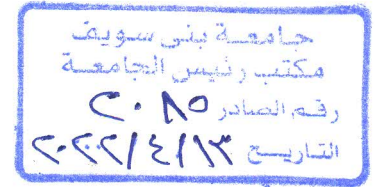 جامعة بنى سويف
مكتب رئيس الجامعة
رقم الصادر ٢٠٨٥
التاريخ ٢٠٢٢/٤/١٣